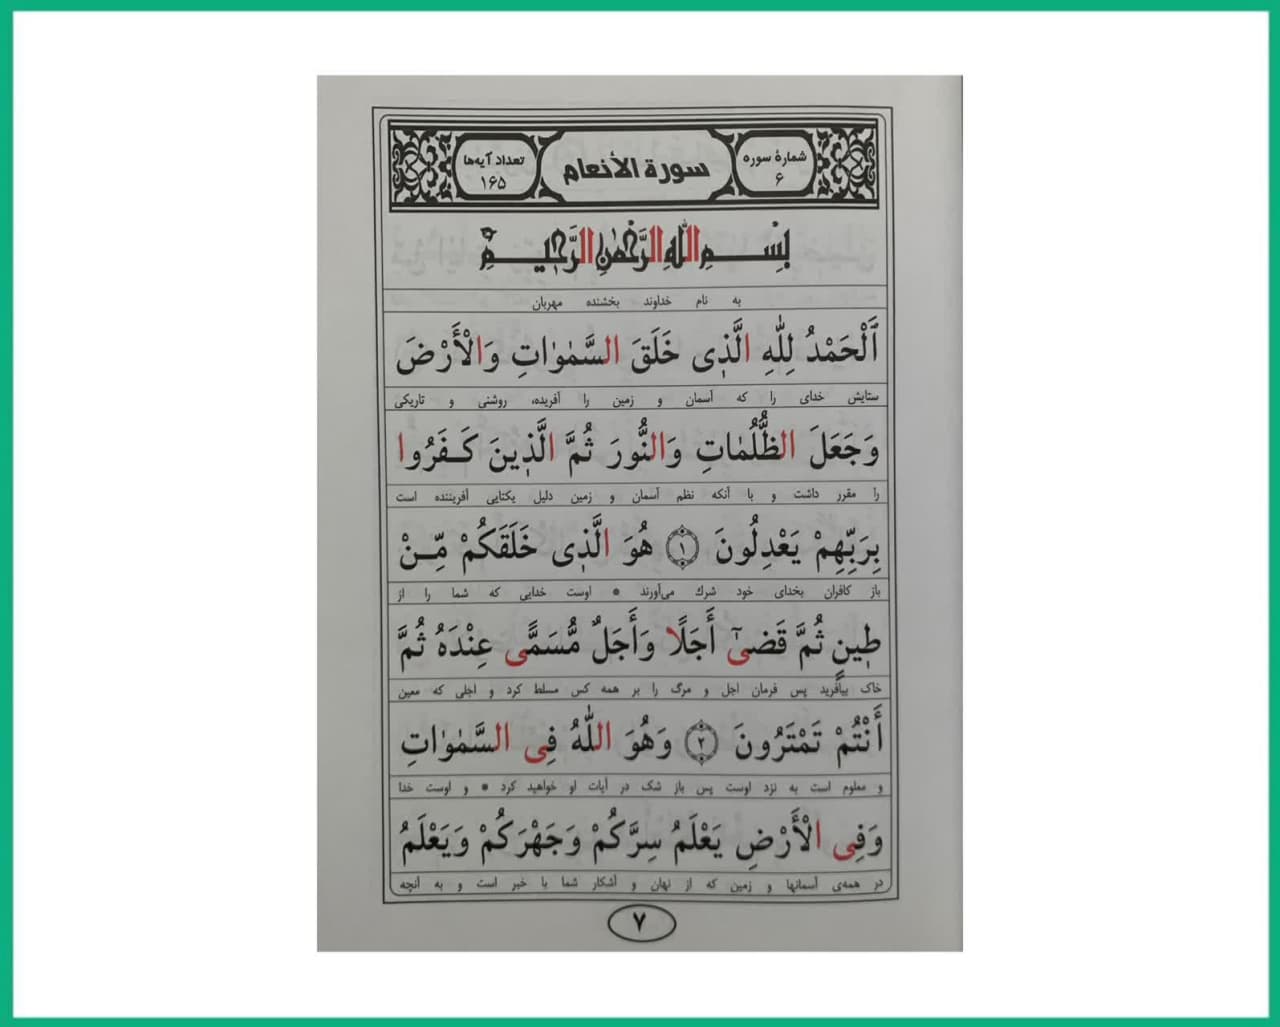 شمارهٔ سوره
۶
سورة الأنعام
تعداد آیه‌ها
۱۶۵
بِسْمِ اللهِ الرَّحْمٰنِ الرَّحيمِ
به نام خداوند بخشنده مهربان
اَلْحَمْدُ لِلّٰهِ الَّذٖى خَلَقَ السَّمٰوٰاتِ وَالْأَرْضَ
ستایش خدای را که آسمان و زمین را آفریده، روشنی و تاریکی
وَجَعَلَ الظُّلُمٰاتِ وَالنُّورَ ثُمَّ الَّذٖينَ كَفَرُوا
را مقرر داشت و با آنکه نظم آسمان و زمین دلیل یکتایی آفریننده است
بِرَبِّهِمْ يَعْدِلُونَ ۱ هُوَ الَّذٖى خَلَقَكُمْ مِّنْ
باز کافران بخدای خود شرك می‌آورند * اوست خدایی که شما را از
طٖينٍ ثُمَّ قَضىٰٓ أَجَلًا وَأَجَلٌ مُّسَمًّى عِنْدَهُ ثُمَّ
خاک بیافرید پس فرمان اجل و مرگ را بر همه کس مسلط کرد و اجلی که معین
أَنْتُمْ تَمْتَرُونَ ۲ وَهُوَ اللّٰهُ فِى السَّمٰوٰاتِ
و معلوم است به نزد اوست پس باز شک در آیات او خواهید کرد * و اوست خدا
وَفِى الْأَرْضِ يَعْلَمُ سِرَّكُمْ وَجَهْرَكُمْ وَيَعْلَمُ
در همه‌ی آسمانها و زمین که از نهان و آشکار شما با خبر است و به آنچه
۷